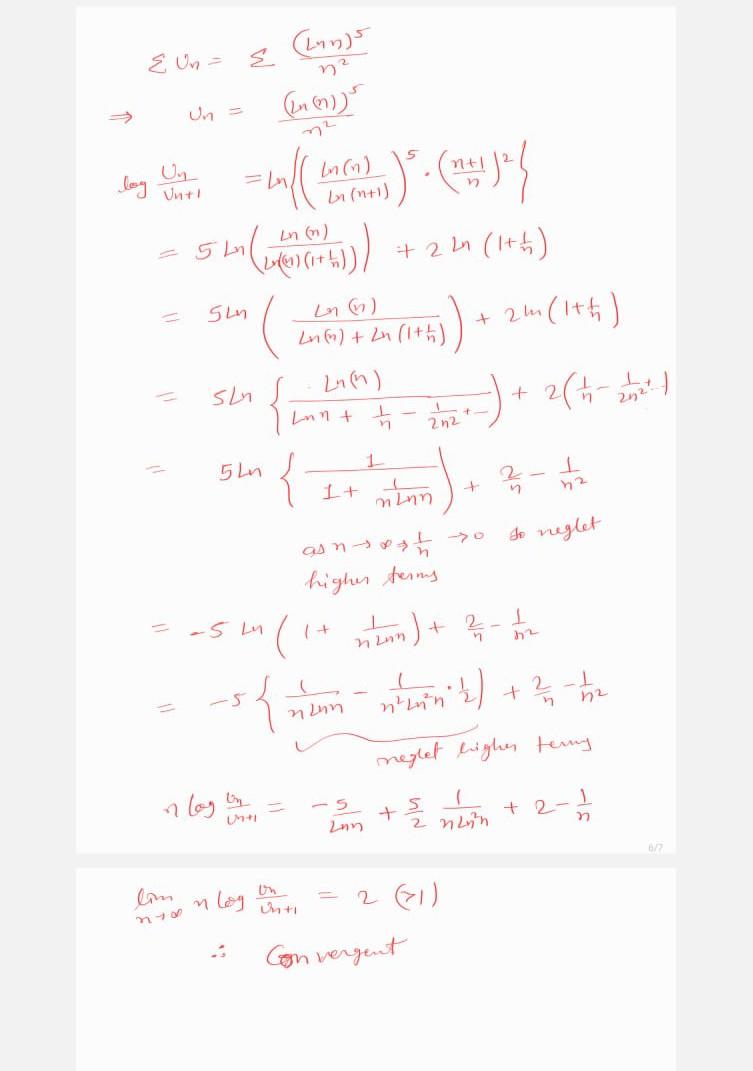 Σ Un = Σ (Ln n)^5 / n^2
⇒ Un = (Ln(n))^5 / n^2
log Un/Un+1 = Ln{(Ln(n) / Ln(n+1))^5 · (n+1 / n)^2}
= 5 Ln(Ln(n) / Ln((n)(1+1/n))) + 2 ln (1+1/n)
= 5Ln (Ln(n) / Ln(n) + Ln(1+1/n)) + 2ln(1+1/n)
= 5Ln {Ln(n) / Ln n + 1/n - 1/2n2 + --) + 2(1/n - 1/2n^2 + -)
= 5Ln {1 / 1 + 1/n Ln n) + 2/n - 1/n2
as n → ∞ ⇒ 1/n → 0 so neglet
higher terms
= -5 Ln (1 + 1/n Ln n) + 2/n - 1/n2
= -5 {1/n Ln n - 1/n^2 Ln^2 n · 1/2) + 2/n - 1/n2
neglet higher terms
n log Un/Un+1 = -5/Ln n + 5/2 1/n Ln^2 n + 2 - 1/n
6/7
lim n→∞ n log Un/Un+1 = 2 (>1)
∴ Convergent